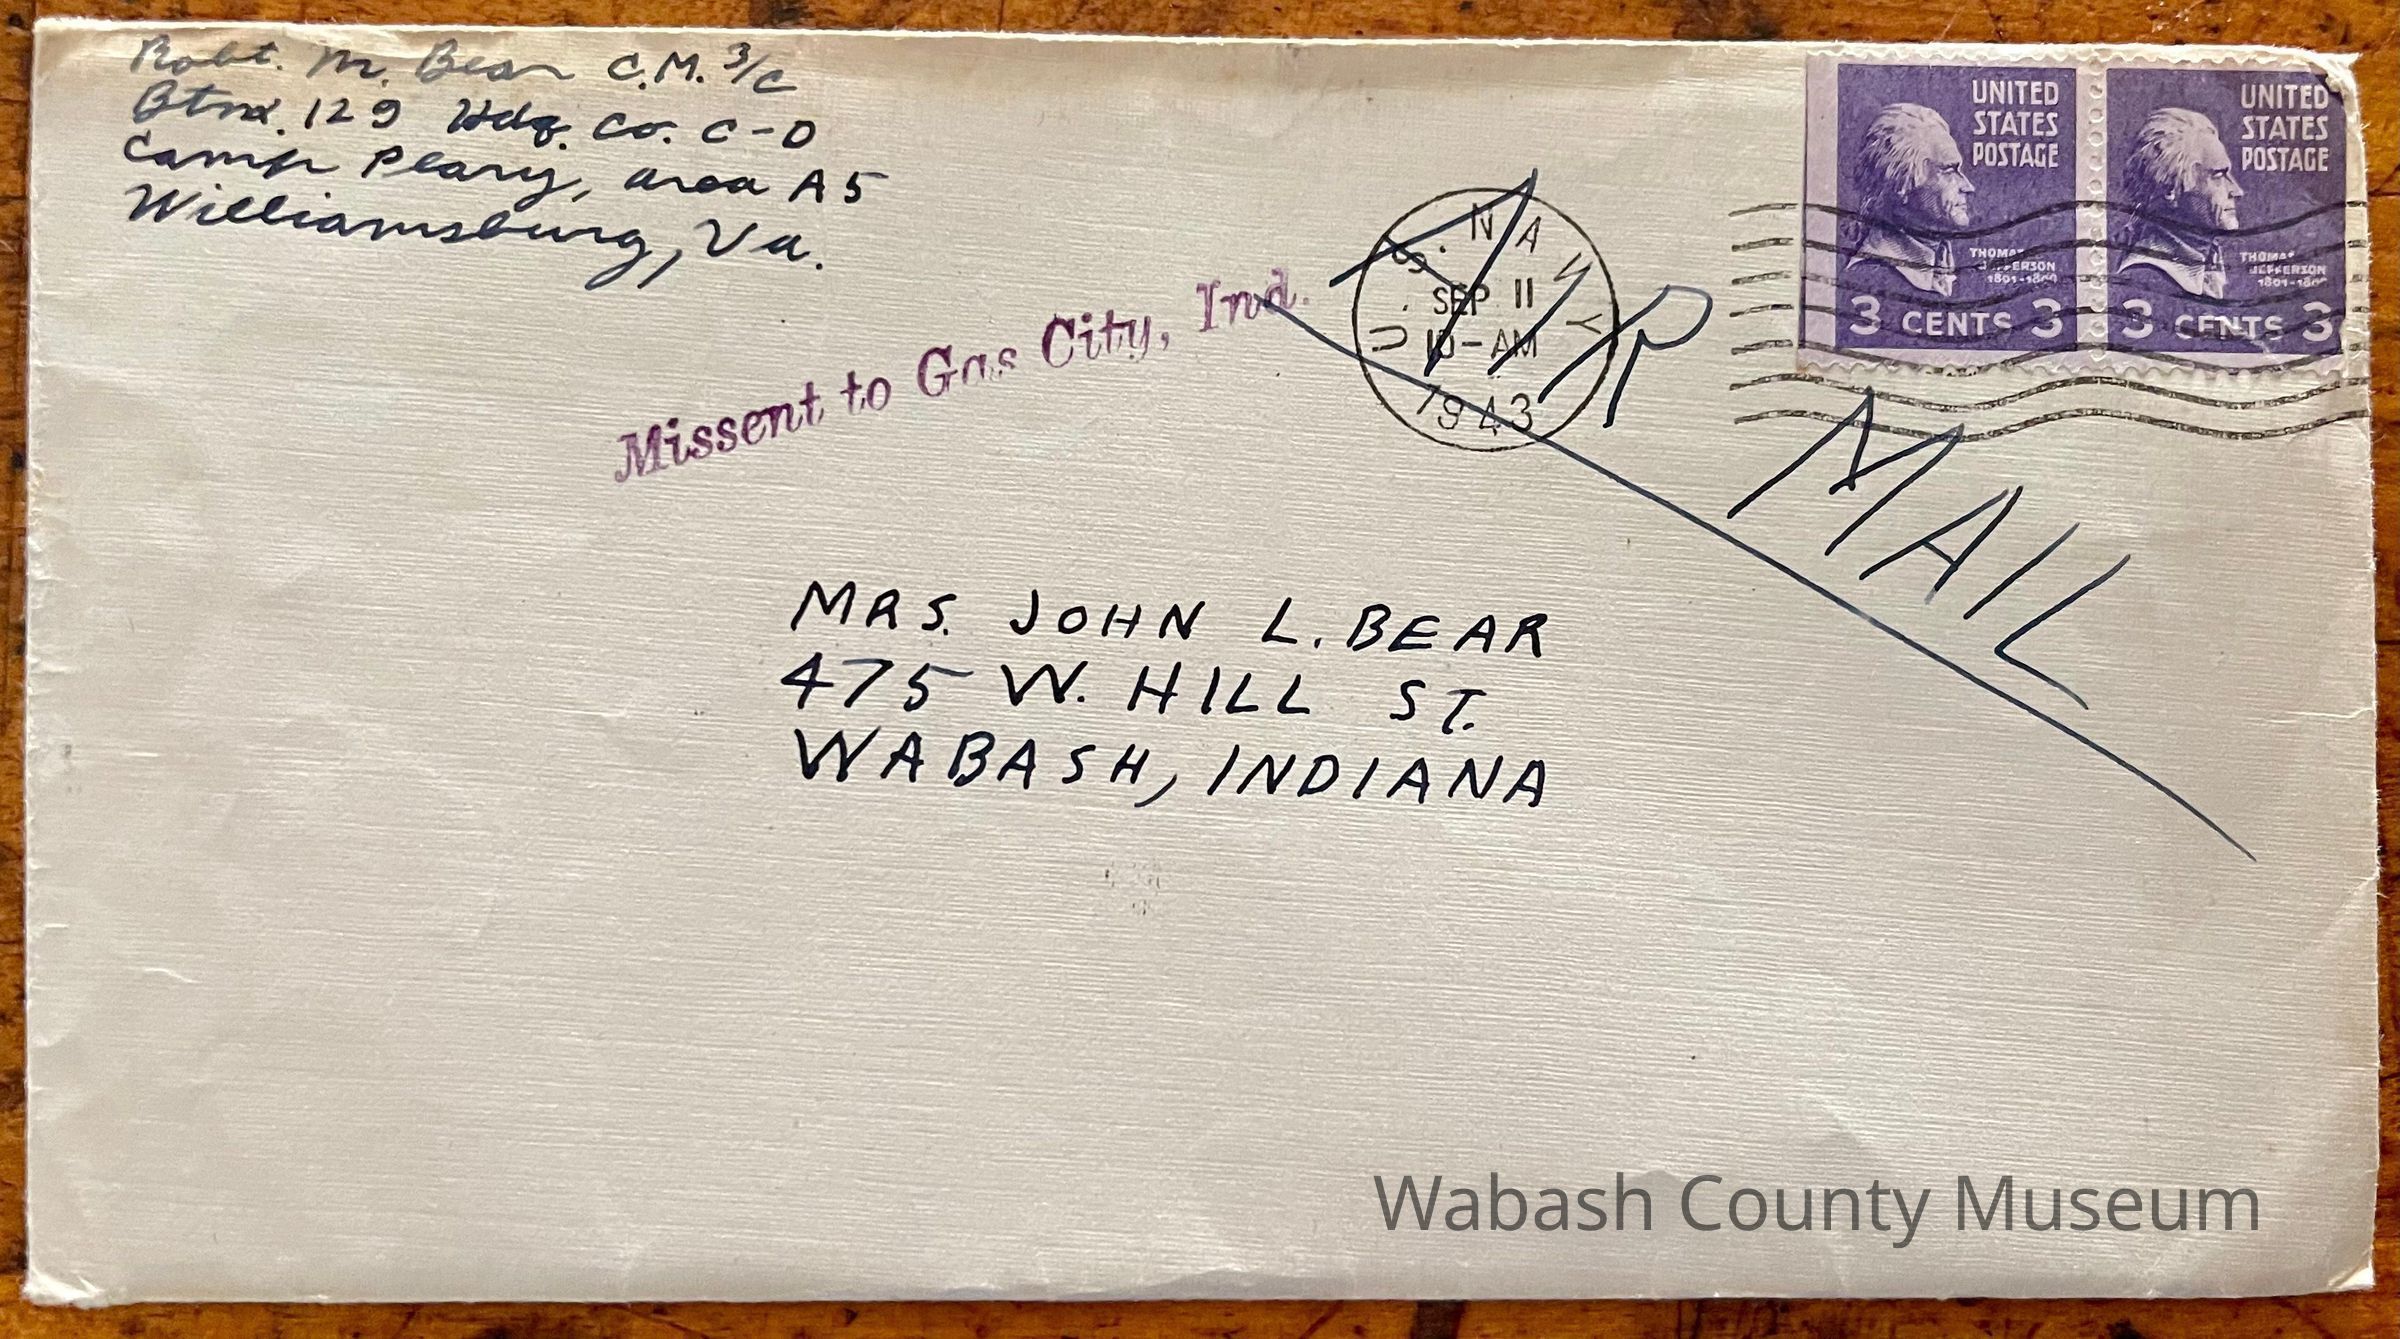 Robt. M. Bear C.M. 3/C
Btn. 129 Hdq. Co. C-D
Camp Peary, area A5
Williamsburg, Va.
Missent to Gas City, Ind.
U.S. NAVY
SEP 11
10-AM
1943
AIR MAIL
UNITED
STATES
POSTAGE
THOMAS
JEFFERSON
1801-1809
3 CENTS 3
UNITED
STATES
POSTAGE
THOMAS
JEFFERSON
1801-1809
3 CENTS 3
MRS. JOHN L. BEAR
475 W. HILL ST.
WABASH, INDIANA
Wabash County Museum